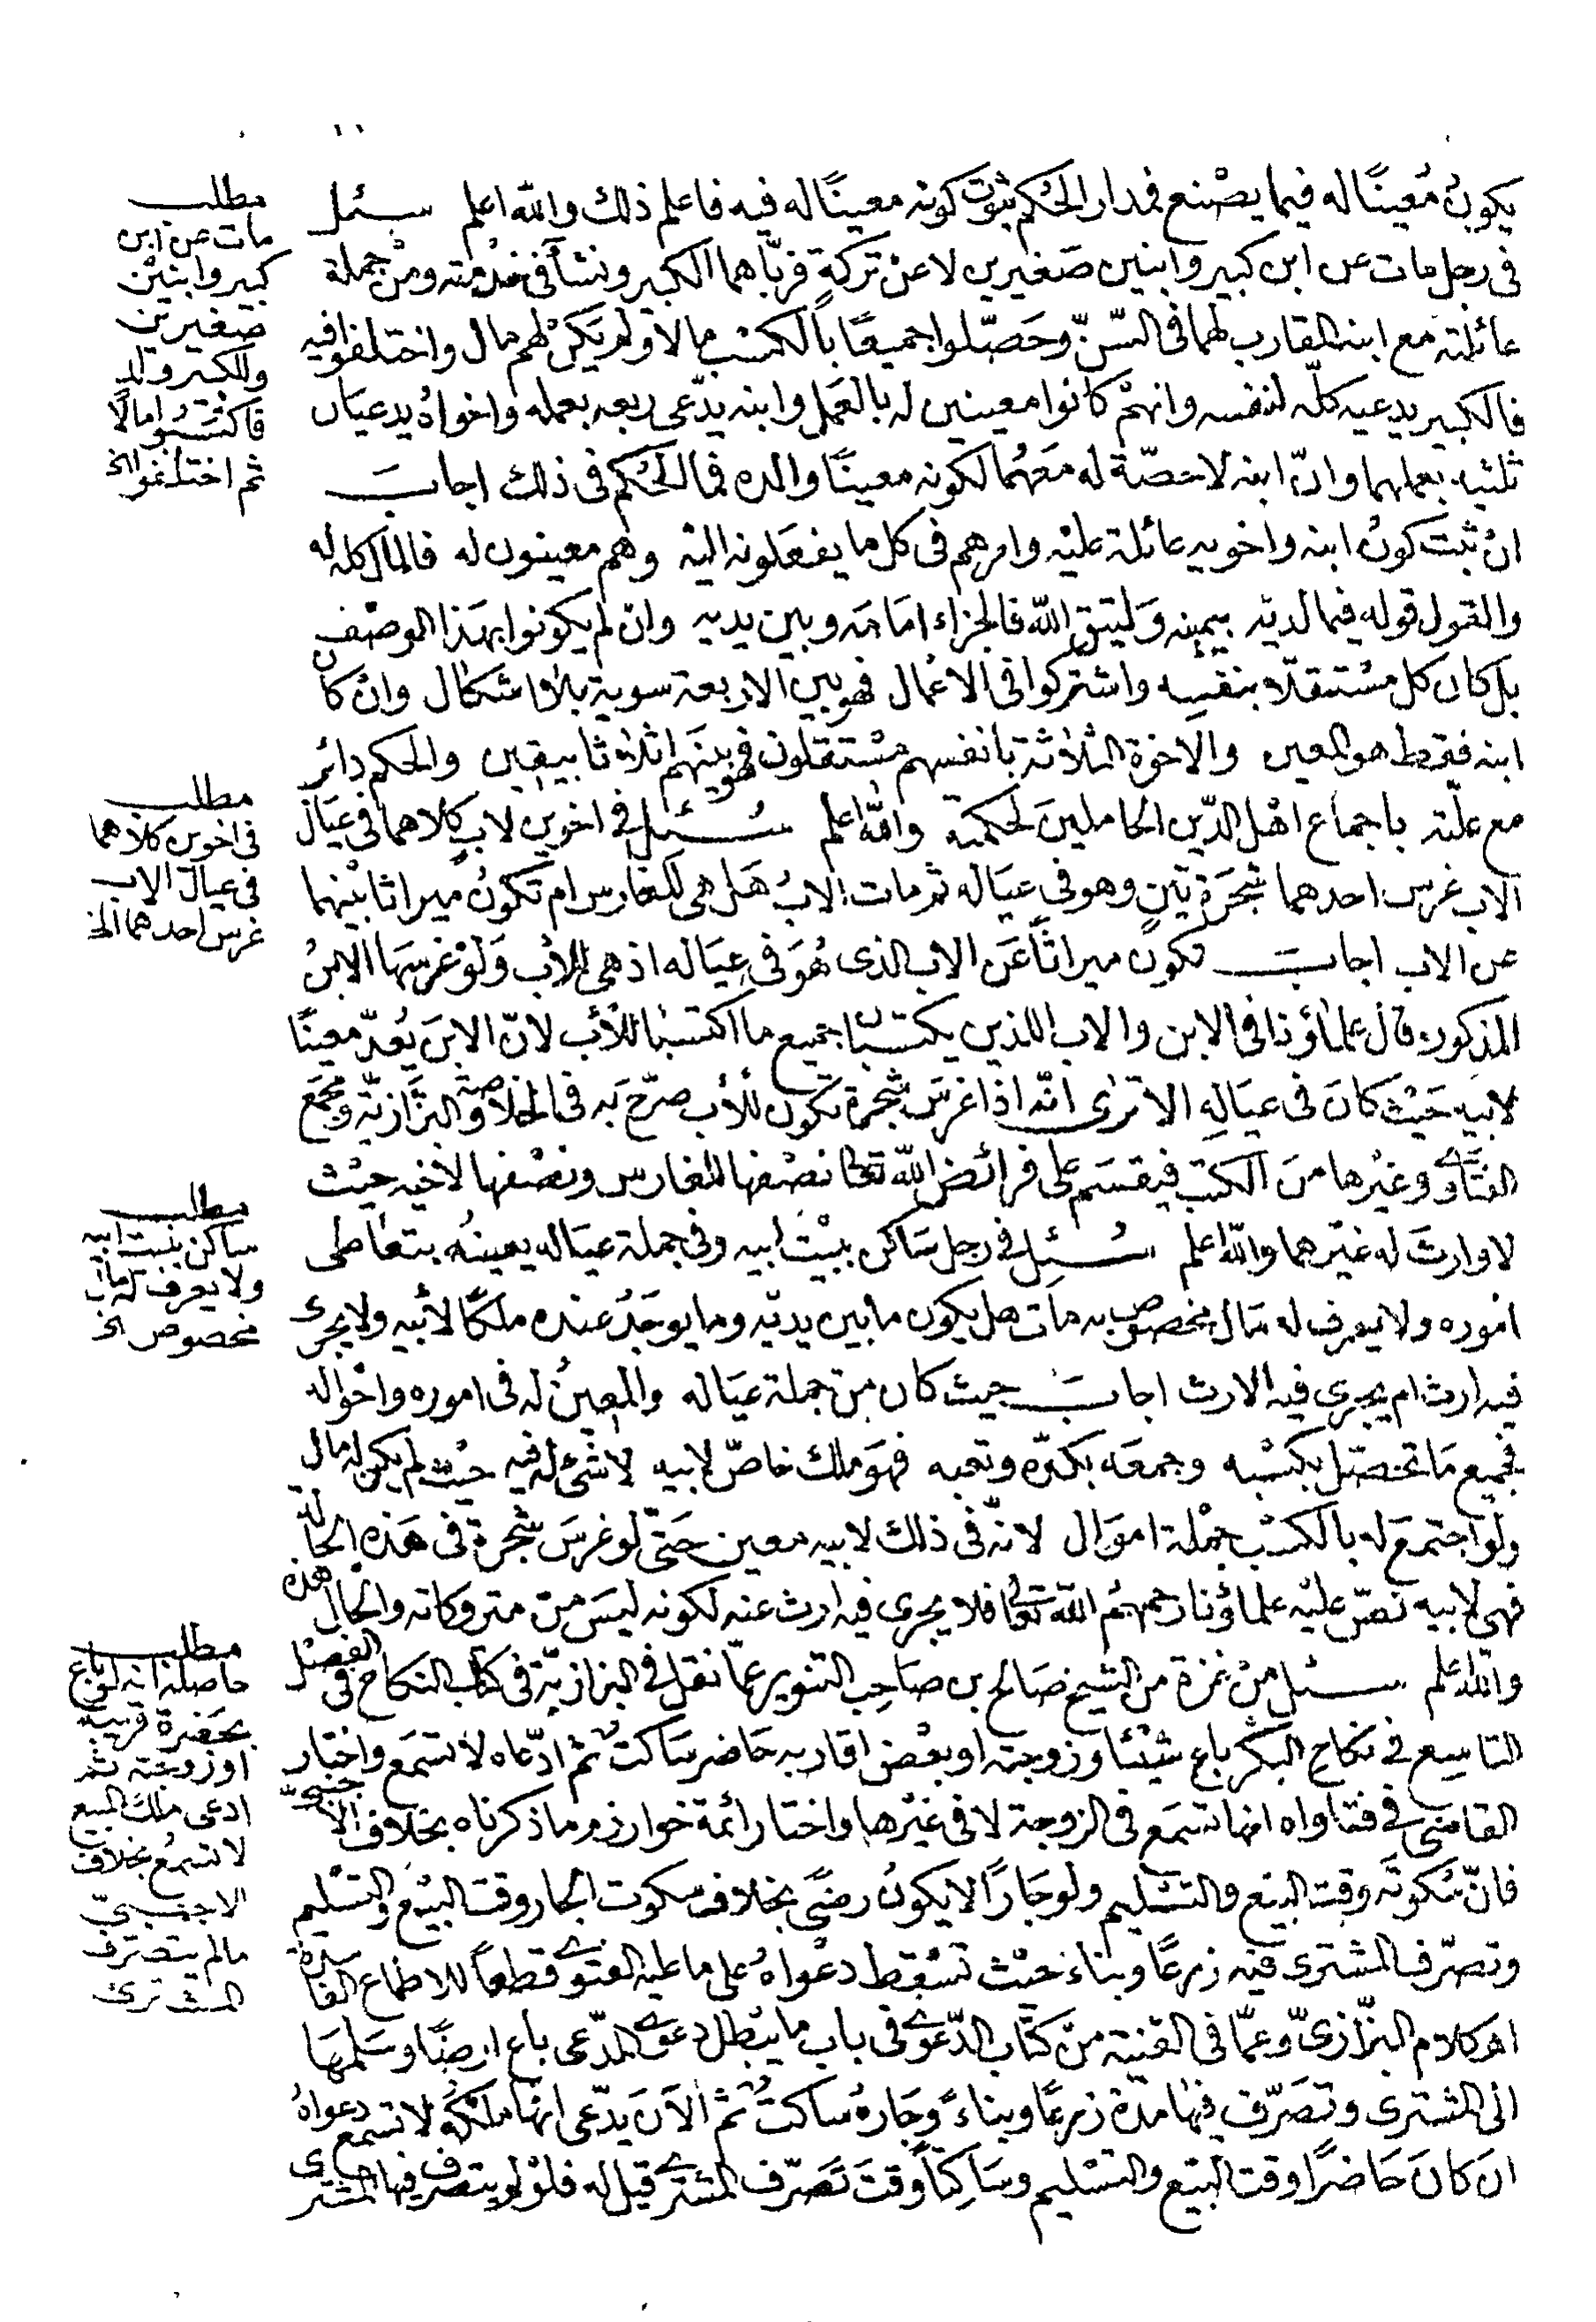 يكونُ مُعينًا له فيما يصْنع فمدار الحُكم ثبوت كونه معينًا له فيه فاعلم ذلك والله اعلم سئل
فى رجل مات عن ابن كبير وابنين صَغيرين لا عنْ تركةٍ فربّاهما الكبير ونشآ فى خدْمته ومنْ جملة
عائلته مع ابنه المقارب لهما فى السّنّ وحَصّلوا جميعًا بالكسْب مالا ولم يَكنْ لهم مال واختلفوا فيه
فالكبير يدعيه كلّه لنفسه وانهمْ كانوا معينين له بالعَمل وابنه يدّعى ربعه بعمله واخواهُ يدعيَان
ثلثيه بعملهما وانّ ابنه لا حصّة له معَهُما لكونه معينًا والده فما الحُكم فى ذلك اجابَ
انْ ثبتَ كونُ ابنه واخويه عائلة عليْه وامرهم فى كل ما يفعَلونه اليْه وهم معينون له فالمال كله له
والقول قوله فيما لديْه بيمينه وَليتق الله فالجزاء امَامَه وبين يديه وانْ لم يكونوا بهَذا الوصْف
بل كان كل مسْتقلّا بنفسِه واشتركوا فى الاعْمال فهو بين الاربعة سوية بلا اشكال وانْ كان
ابنه فقط هو المعين والاخوة الثلاثة بانفسهم مسْتقلون فهو بينَهم اثلاثا بيقين والحكم دائر
مع علّته باجماع اهْل الدّين الحاملين لحكمته والله اعلم سُئل فى اخوين لابٍ كلاهما فى عيَال
الاب غرس احدهما شجَرة تينٍ وهو فى عيَاله ثم مات الابُ هَل هى للغارس ام تكونُ ميراثا بيْنهما
عن الاب اجابَ تكون ميراثًا عَن الاب الذى هُوَ فى عِيَاله اذ هى للأب وَلوْ غرسَهَا الابنُ
المذكور قال علماؤنا فى الابن والاب اللذين يكتسبَان جميع ما اكتسبَا للأب لانّ الابنَ يُعدّ معينًا
لابيه حَيْث كانَ فى عيَالِه الا ترى انّه اذا غرسَ شجرة تكون للأب صرّحَ به فى الخلاصة والبزَّازيّة ومجمَع
الفتَاوى وغيْرها منَ الكتب فيقسَم على فرائض الله تعالى نصْفها للغارس ونصْفها لأخيه حيْث
لا وارثَ له غيْرهما والله اعلم سُئِل فى رجل سَاكن ببيْت ابيه وفى جملة عيَاله يعينُه بتعَاطى
اموره ولا يعرف له مَال مخصوص به مات هل يكون ما بين يديْه وما يوجَدُ عنده ملكًا لأبيه ولا يجرى
فيه ارث ام يجرى فيه الارث اجابَ حيث كان منْ جملة عيَاله والمعينُ له فى اموره واحْواله
فجميع مَا تحَصّل بكسْبه وجمعَه بكدّه وتعبه فهوَ ملك خاصّ لابيه لا شئ له فيه حيْث لم يكن له مال
ولو اجتمعَ له بالكسْب جمْلة اموَال لانّه فى ذلك لابيه معين حَتّى لو غرسَ شجرة فى هَذه الحالة
فهى لابيه نصّ عليْه علماؤنا رحمهمُ الله تعَالى فلا يجرى فيه ارث عنه لكونه ليسَ منْ متروكاته والحال هذه
والله اعلم سئل منْ غزة من الشيخ صَالح بن صَاحِب التنوير عمّا نقل فى البزازيّة فى كتاب النكاح فى الفصْل
التاسِع فى نكاح البكر باع شيْئا وزوجته او بعْض اقاربه حَاضر سَاكتٌ ثمّ ادّعاه لا تسْمَع واختار
القاضى فى فتاواه انها تسْمَع فى الزوجة لا فى غيْرها واختار ائمة خوارزم ما ذكرناه بخلاف الاجنبىّ
فانّ سُكوتَه وقت البيْع والتسْليم ولو جَارًا لا يكونُ رضًى بخلاف سكوت الجار وقت البيْع والتسْليم
وتصرّف المشترى فيْه زرعًا وبناء حَيْث تسْقط دعْواهُ على ما عليه الفتوى قطعاً للاطماع الفاسدة
اهـ كلام البزّازىّ وعمّا فى القنية منْ كتَاب الدّعْوى فى باب ما يبْطل دعوى المدّعى باع ارضًا وسَلّمهَا
الى المشترى وتصَرّف فيْها مدّة زرعًا وبناءً وجَارهُ سَاكتٌ ثمّ الآنَ يدّعى انهَا ملْكه لا تسْمع دعواهُ
انْ كانَ حَاضرًا وقت البيْع والتسْليم وسَاكِتًا وقتَ تَصَرّف المشترى قيل له فلوْ لم يتصرف فيها المشترى
مطلب
مات عن ابن
كبير وابنيْن
صَغيرين
وللكبير ولد
فاكتسَبُوا مالًا
ثم اختلفوا الخ
مطلب
فى اخوين كلاهما
فى عيال الاب
غرس احدهما الخ
مطلب
ساكن ببيت ابيه
ولا يعرف له مال
مخصوص الخ
مطلب
حاصله انه لو باع
بحَضرة قريبه
او زوجته ثم
ادعى ملكَ المبيع
لا تسْمعُ بخلاف
الاجنبىّ
مالم يتصرف
المشترى